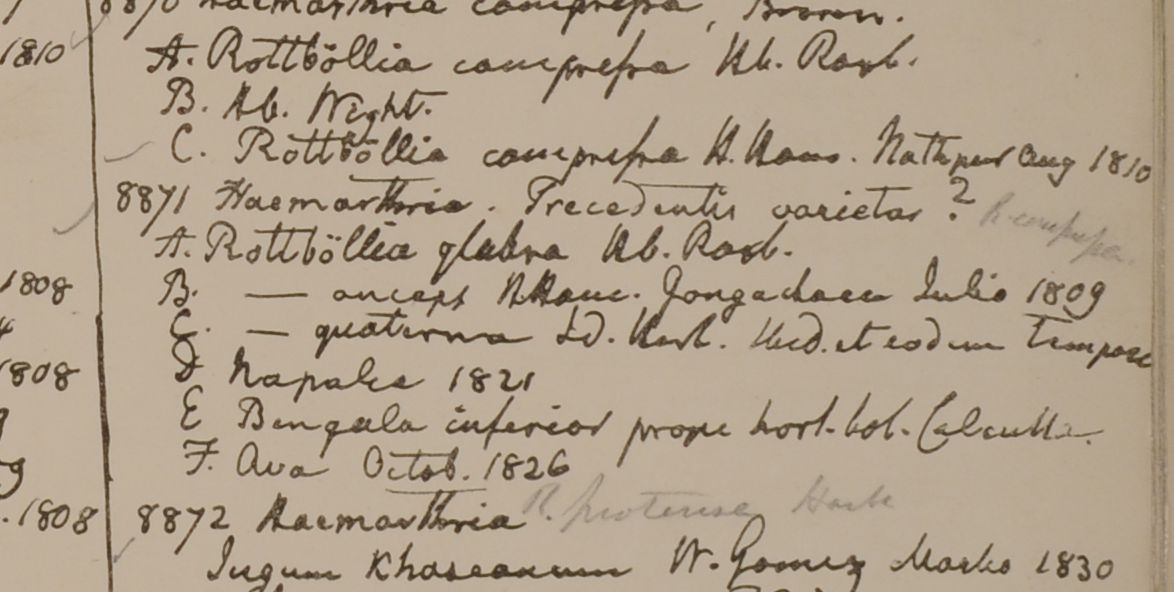 8870 Haemarthria compressa, Brown.
1810
A. Rottböllia compressa Hb. Roxb.
B. Hb. Wight.
C. Rottböllia compressa H. Ham. Nathpur Aug 1810
8871 Haemarthria. Precedentis varietas? R. compressa
A. Rottböllia glabra Hb. Roxb.
1808
B. — anceps H Ham. Julio 1809
C. — quaterna Id. Herb. et eodem tempore
1808
D Napalia 1821
E Bengala inferior prope hort. bot. Calcutta.
F. Ava Octob. 1826
.1808
8872 Haemarthria R. protensa
Jugum Khaseanum W. Gomez Martio 1830